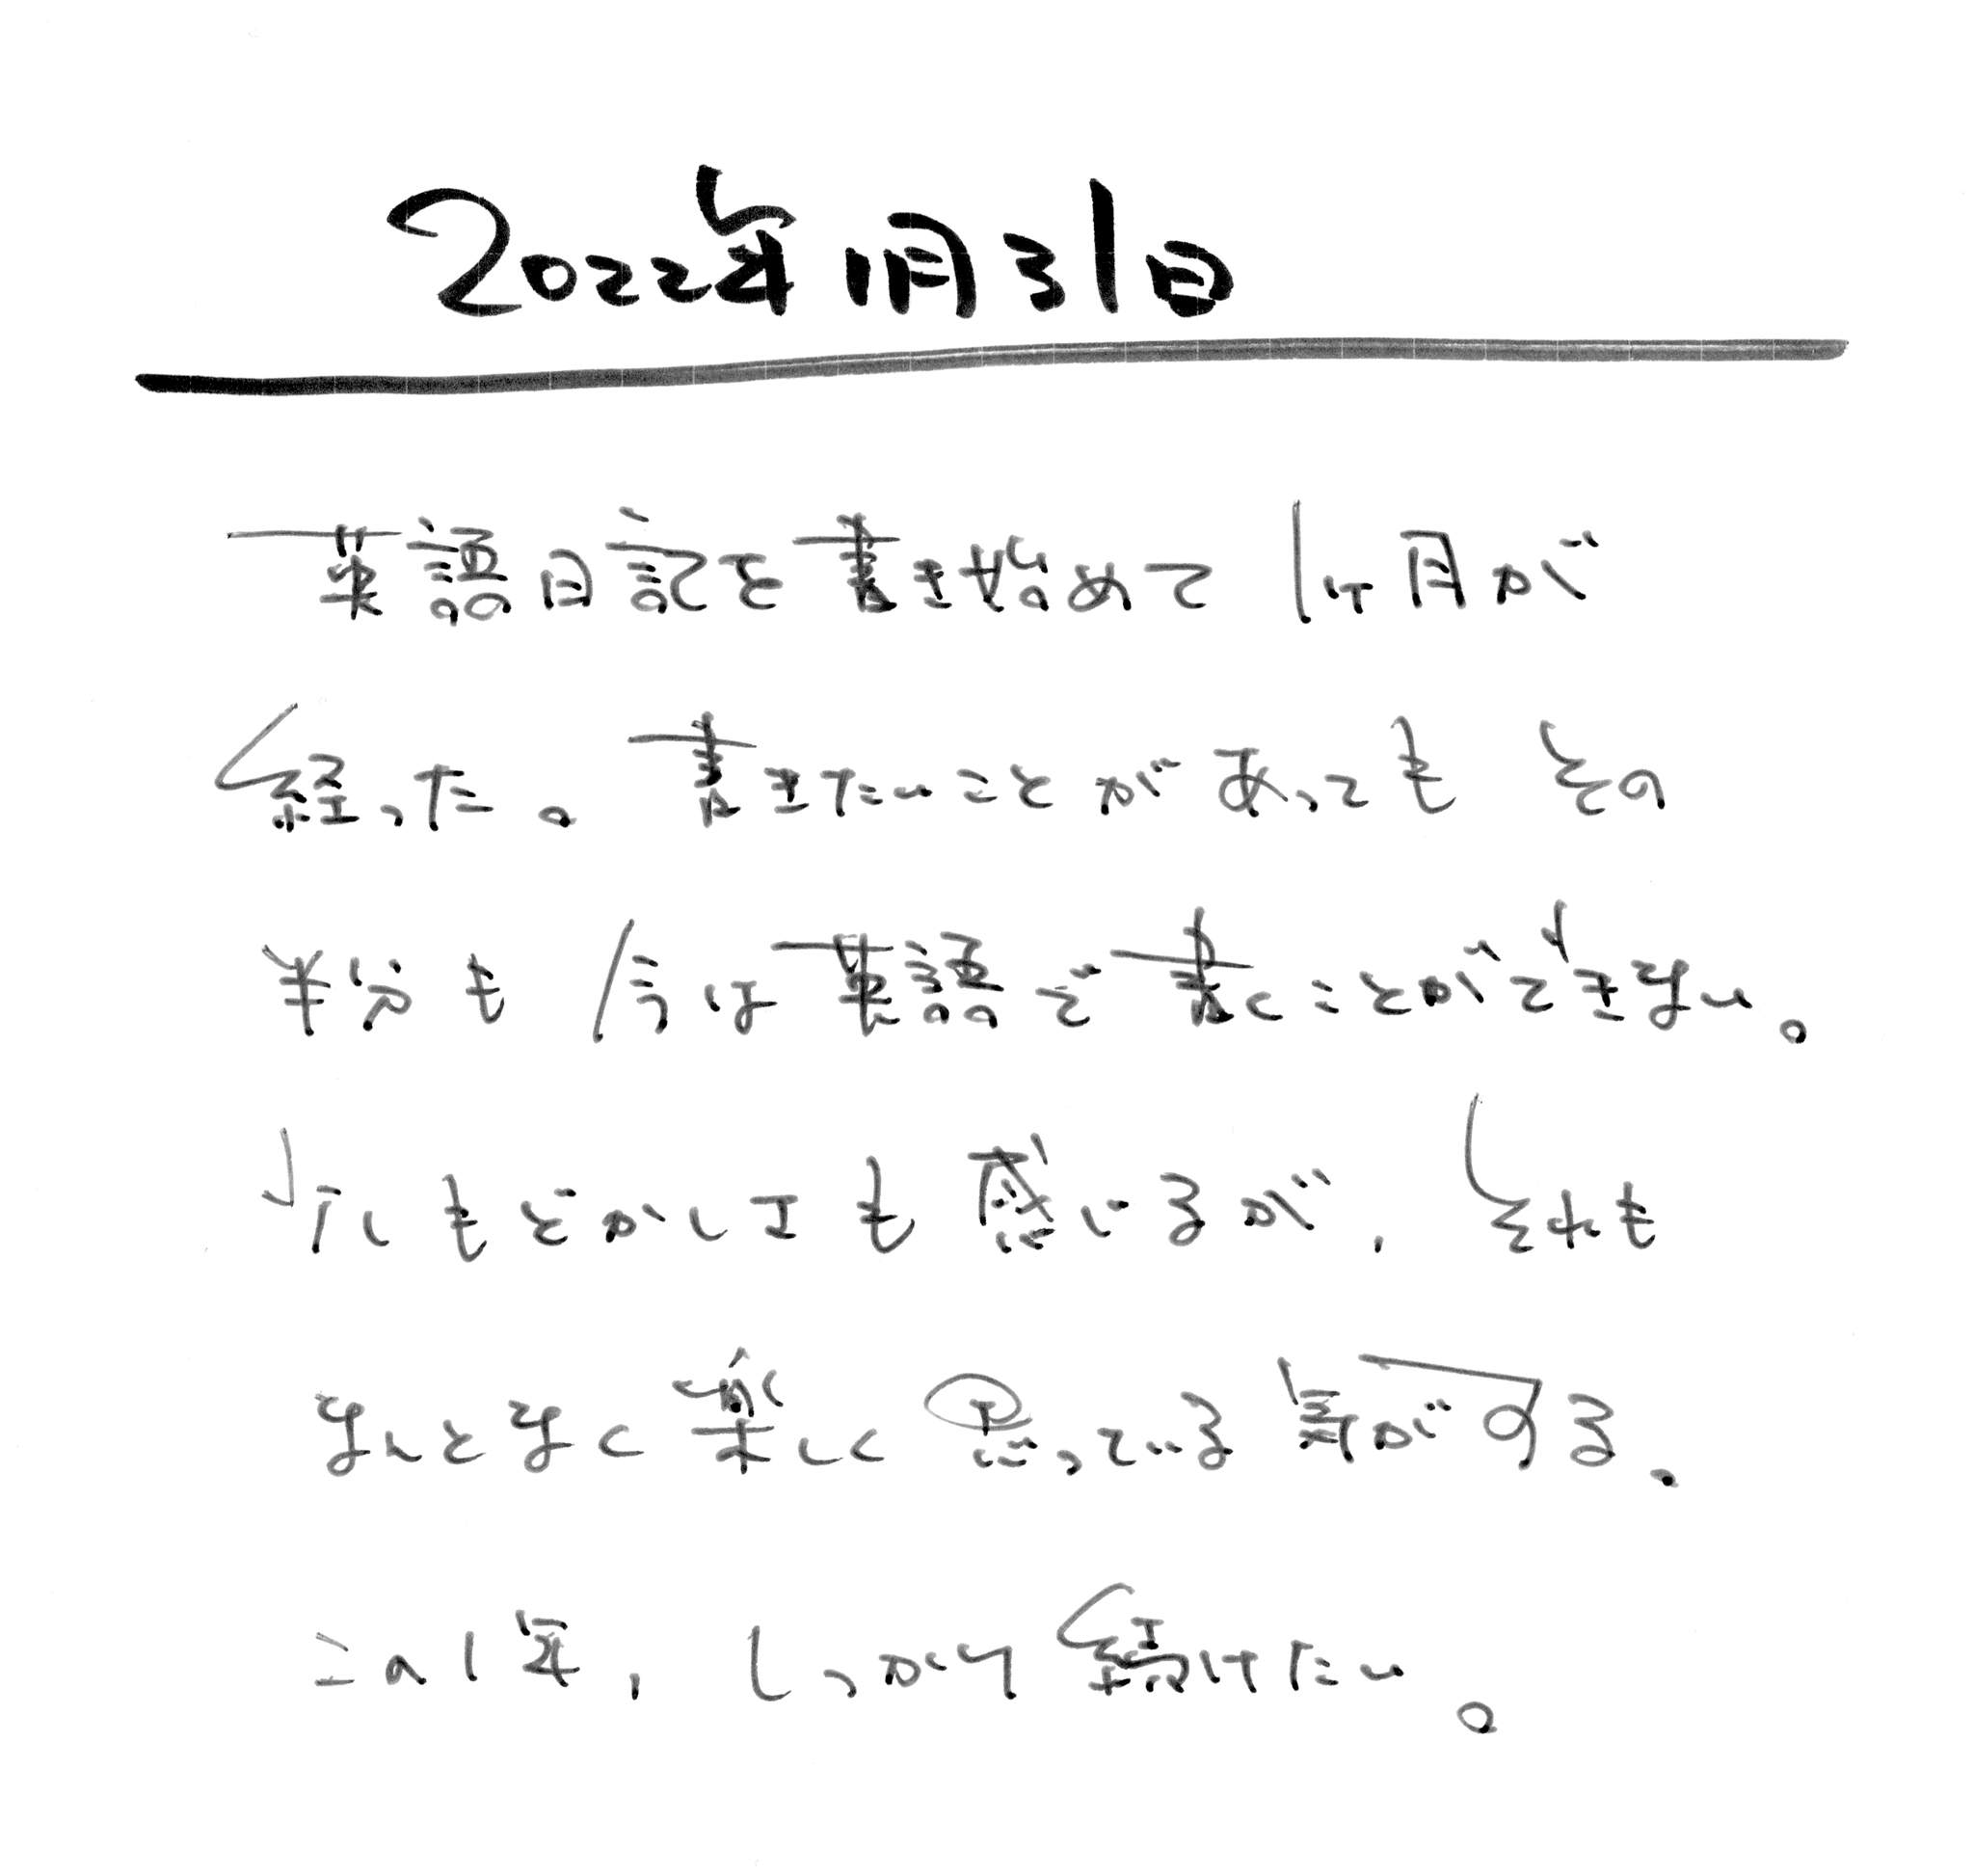 2022年1月31日
英語日記を書き始めて1ヶ月が
経った。書きたいことがあってもその
半分も今は英語で書くことができない。
少しもどかしエも感じるが、それも
なんとなく楽しく思っている気がする。
この1年、しっかり続けたい。